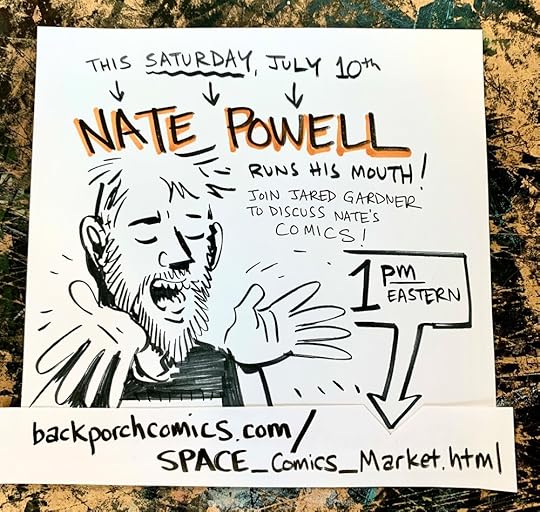 THIS SATURDAY, JULY 10th
NATE POWELL
RUNS HIS MOUTH!
JOIN JARED GARDNER
TO DISCUSS NATE'S
COMICS!
1 pm
EASTERN
backporchcomics.com/
SPACE_Comics_Market.html